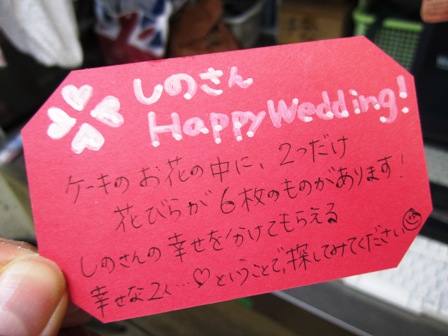 しのさん
Happy Wedding!
ケーキのお花の中に、2つだけ
花びらが6枚のものがあります!
しのさんの幸せを分けてもらえる
幸せな2く…♡ということで、探してみてください